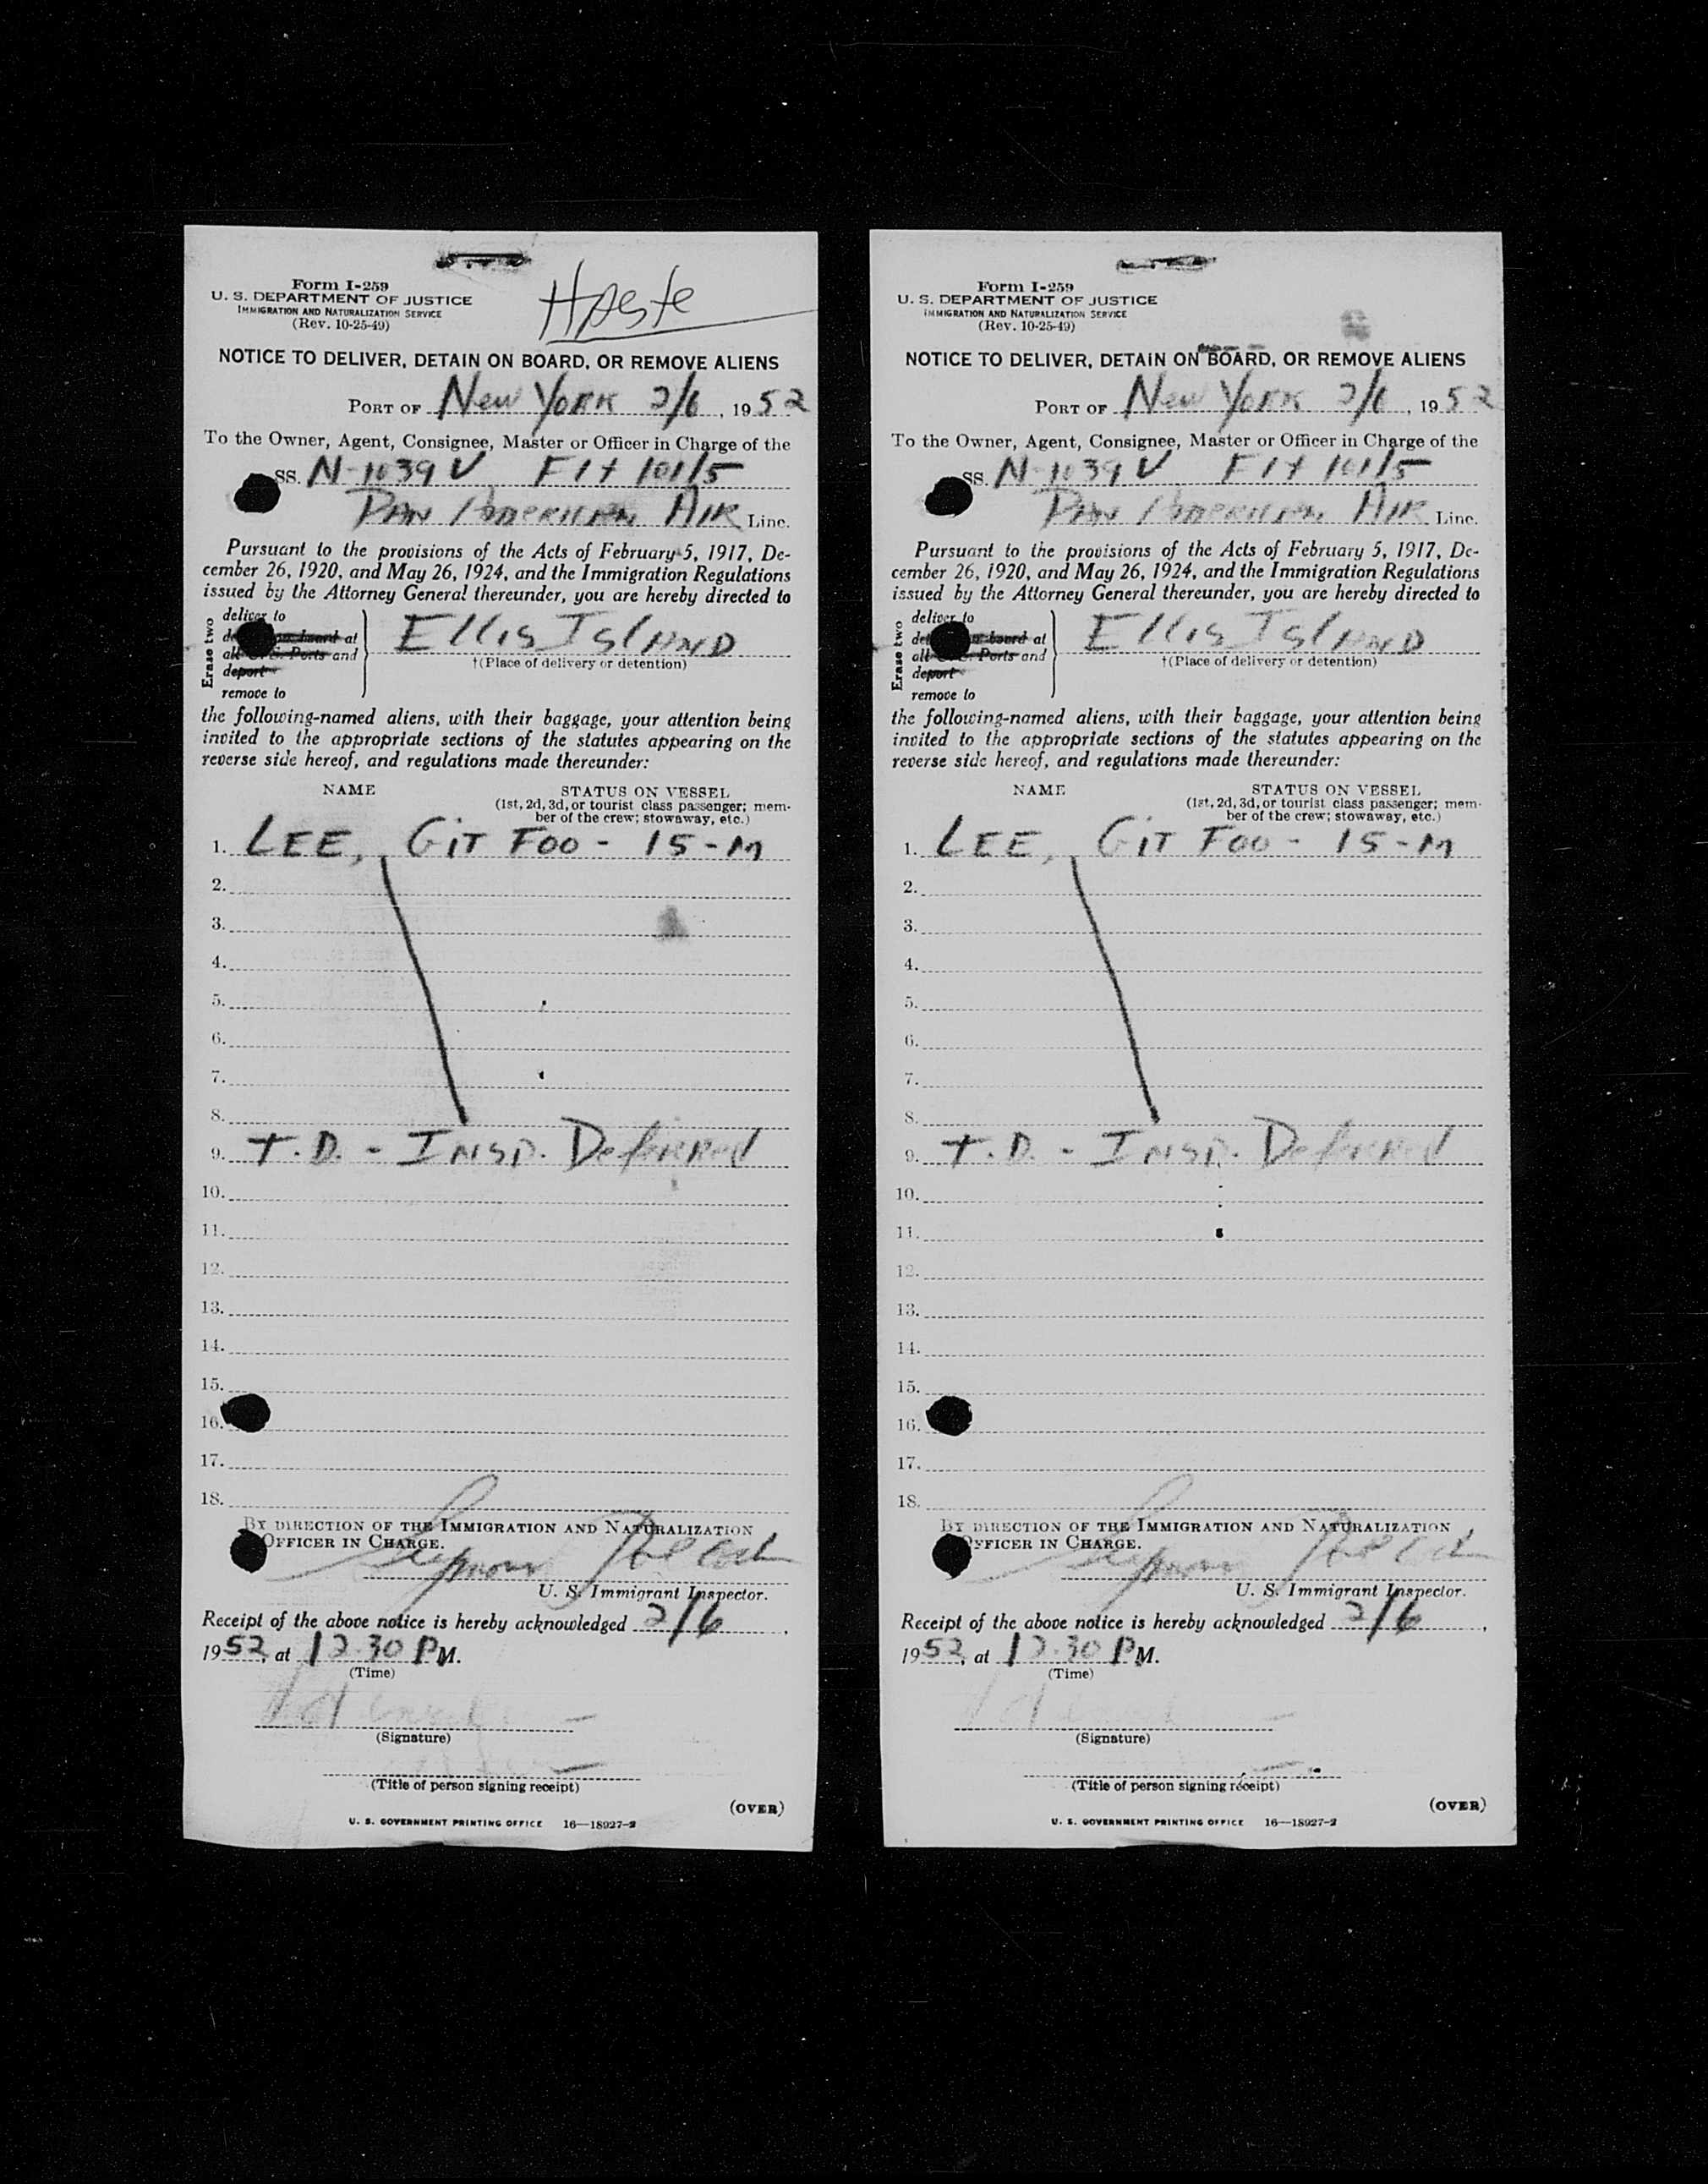 Form I-259
U. S. DEPARTMENT OF JUSTICE
IMMIGRATION AND NATURALIZATION SERVICE
(Rev. 10-25-49)
Haste
NOTICE TO DELIVER, DETAIN ON BOARD, OR REMOVE ALIENS
PORT OF New York 2/6, 1952
To the Owner, Agent, Consignee, Master or Officer in Charge of the
SS. N-1039V Flt 101/5
Pan American Air Line.
Pursuant to the provisions of the Acts of February 5, 1917, De-
cember 26, 1920, and May 26, 1924, and the Immigration Regulations
issued by the Attorney General thereunder, you are hereby directed to
Erase two
deliver to
board at
all Ports and
deport
remove to
Ellis Island
†(Place of delivery or detention)
the following-named aliens, with their baggage, your attention being
invited to the appropriate sections of the statutes appearing on the
reverse side hereof, and regulations made thereunder:
NAME STATUS ON VESSEL
(1st, 2d, 3d, or tourist class passenger; mem-
ber of the crew; stowaway, etc.)
1. LEE, GIT FOO - 15-M
2.
3.
4.
5.
6.
7.
8.
9. T.D. - Insp. Deferred
10.
11.
12.
13.
14.
15.
16.
17.
18.
BY DIRECTION OF THE IMMIGRATION AND NATURALIZATION
OFFICER IN CHARGE.
U. S. Immigrant Inspector.
Receipt of the above notice is hereby acknowledged 2/6,
1952, at 12.30 PM.
(Time)
(Signature)
(Title of person signing receipt)
(OVER)
U. S. GOVERNMENT PRINTING OFFICE 16—18927-2
Form I-259
U. S. DEPARTMENT OF JUSTICE
IMMIGRATION AND NATURALIZATION SERVICE
(Rev. 10-25-49)
NOTICE TO DELIVER, DETAIN ON BOARD, OR REMOVE ALIENS
PORT OF New York 2/6, 1952
To the Owner, Agent, Consignee, Master or Officer in Charge of the
SS. N-1039V Flt 101/5
Pan American Air Line.
Pursuant to the provisions of the Acts of February 5, 1917, De-
cember 26, 1920, and May 26, 1924, and the Immigration Regulations
issued by the Attorney General thereunder, you are hereby directed to
Erase two
deliver to
board at
all Ports and
deport
remove to
Ellis Island
†(Place of delivery or detention)
the following-named aliens, with their baggage, your attention being
invited to the appropriate sections of the statutes appearing on the
reverse side hereof, and regulations made thereunder:
NAME STATUS ON VESSEL
(1st, 2d, 3d, or tourist class passenger; mem-
ber of the crew; stowaway, etc.)
1. LEE, GIT FOO - 15-M
2.
3.
4.
5.
6.
7.
8.
9. T.D. - Insp. Deferred
10.
11.
12.
13.
14.
15.
16.
17.
18.
BY DIRECTION OF THE IMMIGRATION AND NATURALIZATION
OFFICER IN CHARGE.
U. S. Immigrant Inspector.
Receipt of the above notice is hereby acknowledged 2/6,
1952, at 12.30 PM.
(Time)
(Signature)
(Title of person signing receipt)
(OVER)
U. S. GOVERNMENT PRINTING OFFICE 16—18927-2